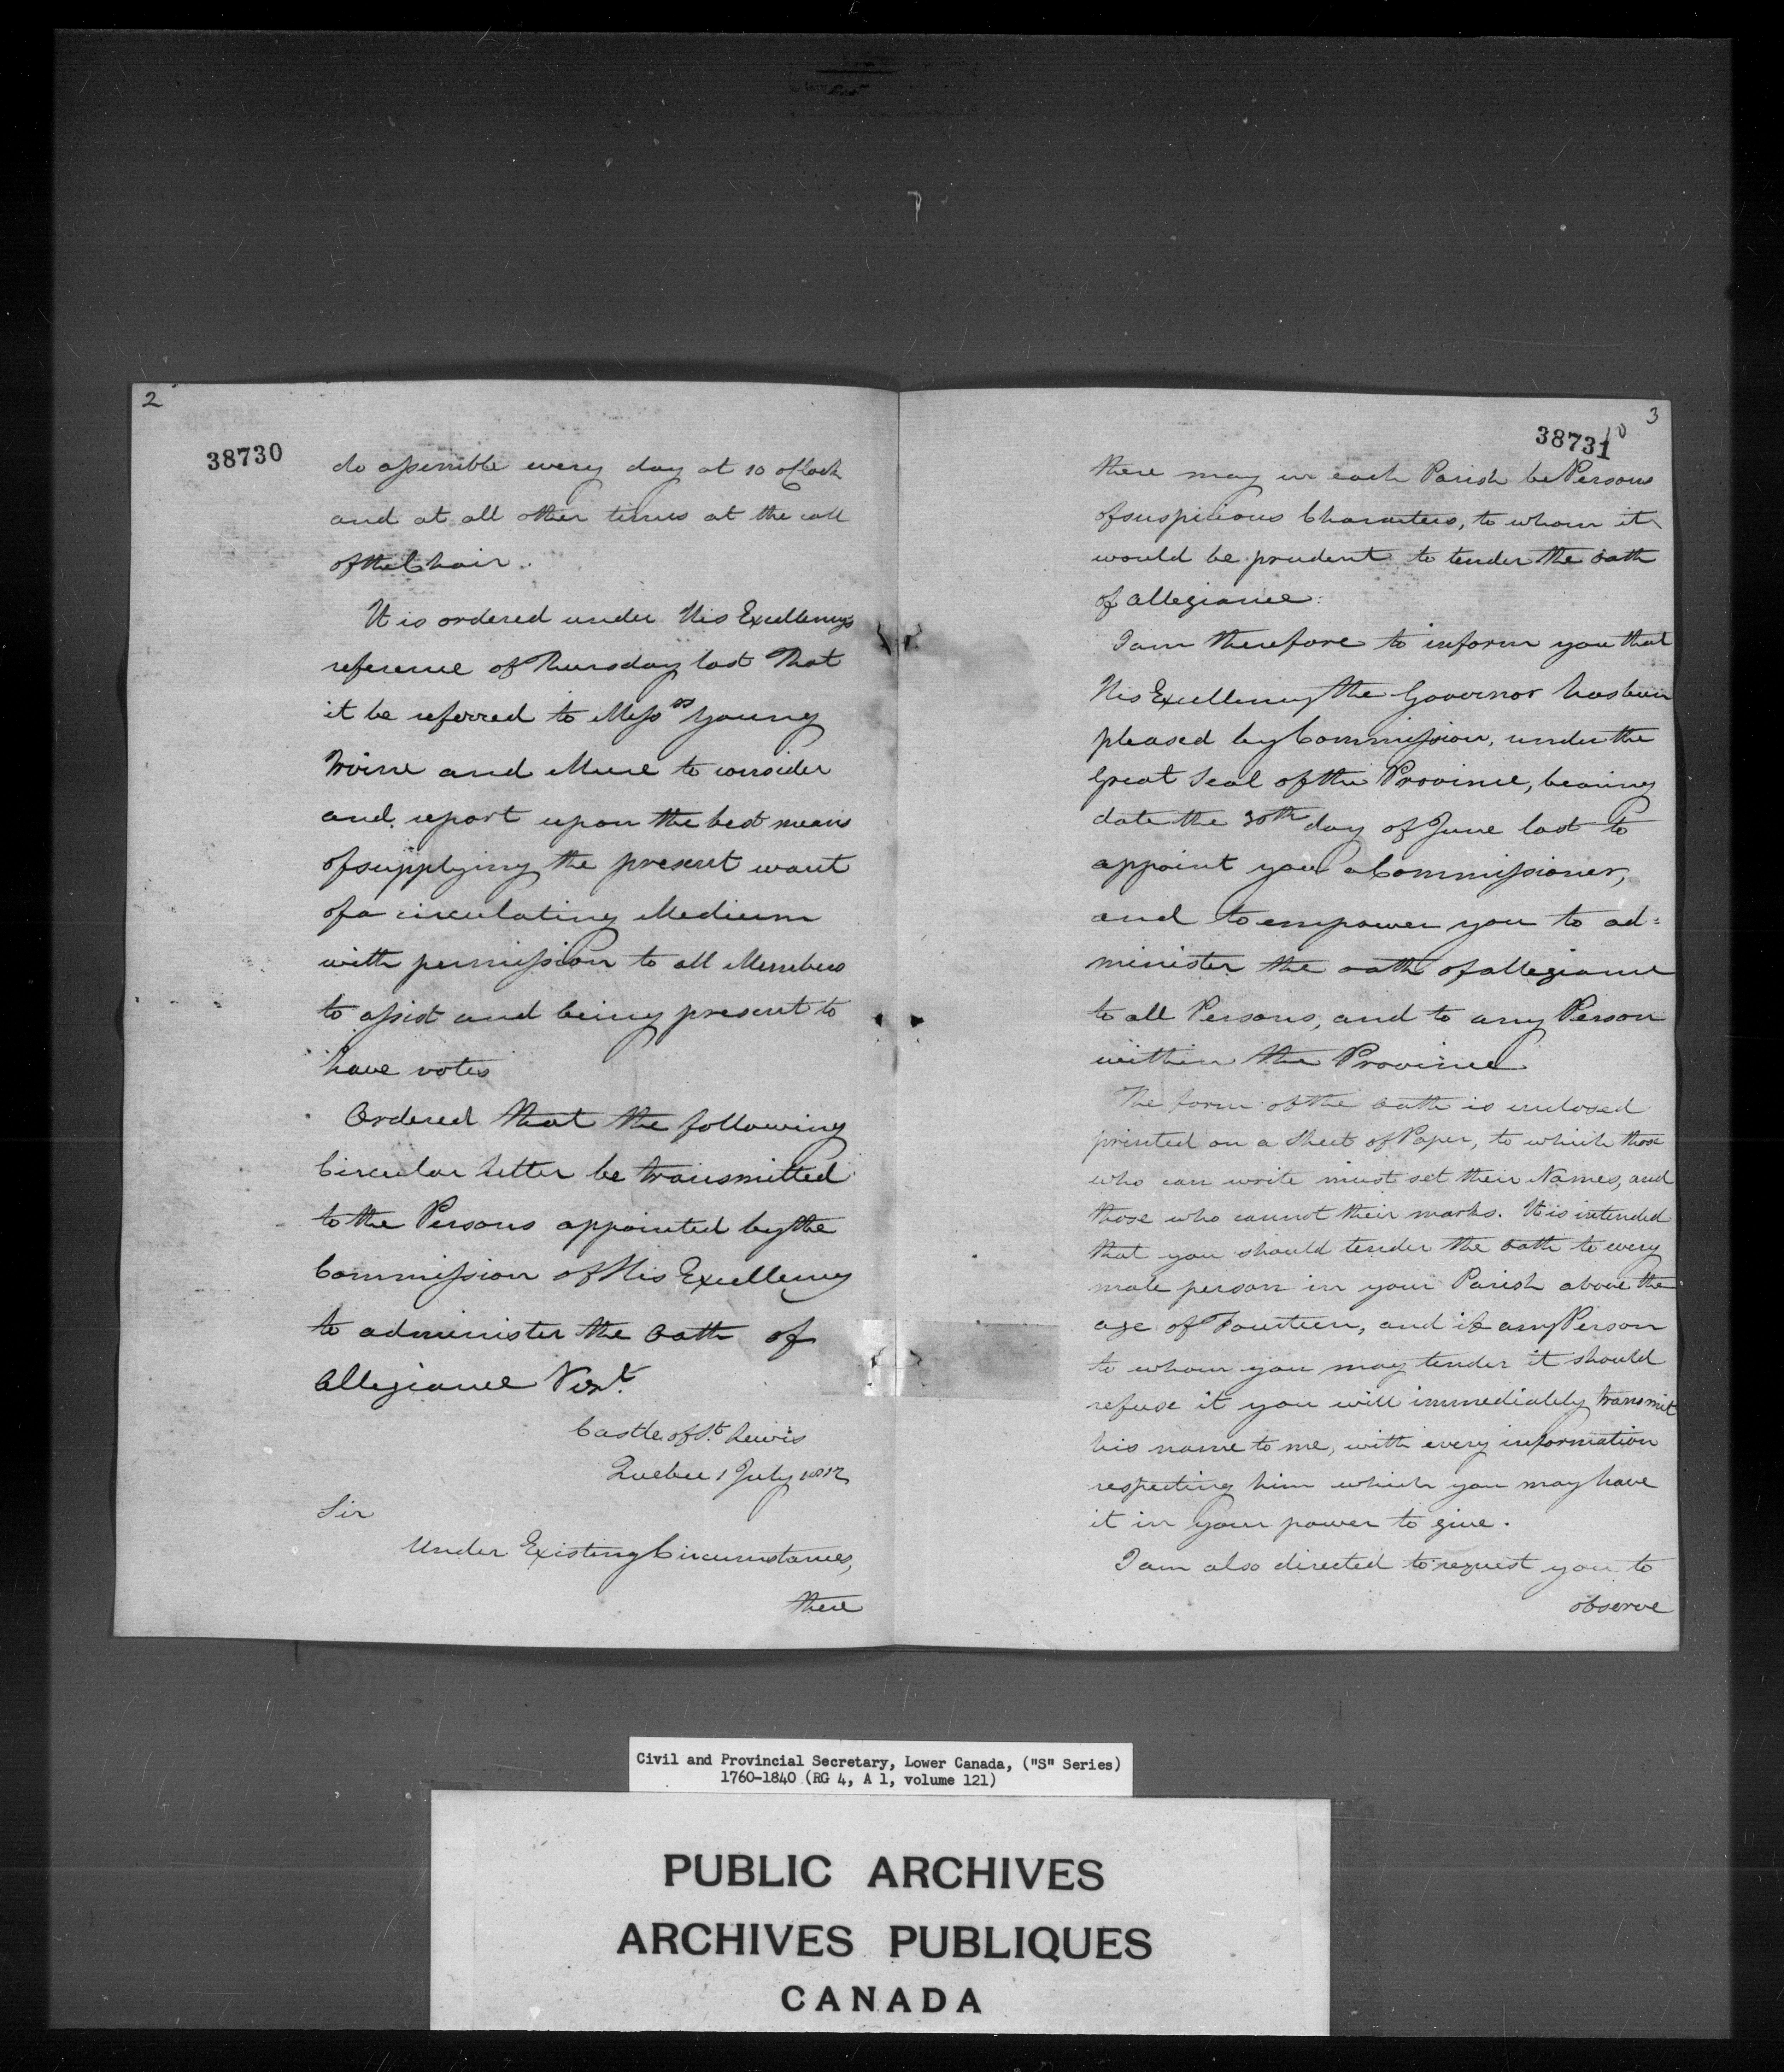 2
38730
do assemble every day at 10 oClock
and at all other times at the call
of the Chair.
It is ordered under His Excellency's
reference of Thursday last That
it be referred to Mess.rs Young
Irvine and Mure to consider
and report upon the best means
of supplying the present want
of a circulating Medium
with permission to all Members
to assist and being present to
have votes
Ordered that the following
Circular Letter be transmitted
to the Persons appointed by the
Commission of His Excellency
to administer the Oath of
Allegiance Vizt.
Castle of St. Lewis
Quebec 1 July 1812
Sir
Under Existing Circumstances,
there
3
38731
there may in each Parish be Persons
of suspicious Characters, to whom it
would be prudent to tender the Oath
of Allegiance.
I am therefore to inform you that
His Excellency the Governor has been
pleased by Commission, under the
Great Seal of the Province, bearing
date the 30th day of June last to
appoint you a Commissioner,
and to empower you to ad=
minister the oath of allegiance
to all Persons, and to any Person
within the Province
The form of the Oath is enclosed
printed on a sheet of Paper, to which those
who can write must set their Names, and
those who cannot their marks. It is intended
that you should tender the Oath to every
male person in your Parish above the
age of Fourteen, and if any Person
to whom you may tender it should
refuse it you will immediately transmit
his name to me, with every information
respecting him which you may have
it in your power to give.
I am also directed to request you to
observe
Civil and Provincial Secretary, Lower Canada, ("S" Series)
1760-1840 (RG 4, A 1, volume 121)
PUBLIC ARCHIVES
ARCHIVES PUBLIQUES
CANADA